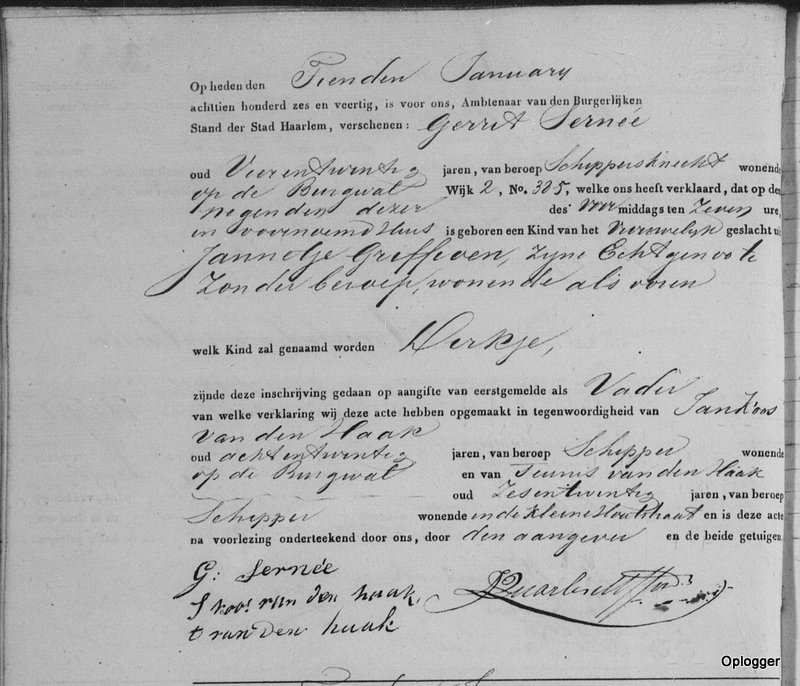 Op heden den Tienden January
achttien honderd zes en veertig, is voor ons, Ambtenaar van den Burgerlijken
Stand der Stad Haarlem, verschenen: Gerrit Sernée
oud Vierentwintig jaren, van beroep Schippersknecht wonende
op de Burgwal Wijk 2, No. 385, welke ons heeft verklaard, dat op den
negenden dezer des Voor middags ten Zeven ure,
in voornoemd Huis is geboren een Kind van het Vrouwelijk geslacht uit
Jannetje Greffeven, zijne Echtgenoote
Zonder beroep, wonende als voren
welk Kind zal genaamd worden Derkje,
zijnde deze inschrijving gedaan op aangifte van eerstgemelde als Vader
van welke verklaring wij deze acte hebben opgemaakt in tegenwoordigheid van Jan Koos
van den Haak
oud achtentwintig jaren, van beroep Schipper wonende
op de Burgwal en van Teunis van den Haak
oud Zesentwintig jaren, van beroep
Schipper wonende in de Kleine Houtstraat en is deze acte
na voorlezing onderteekend door ons, door den aangever en de beide getuigen.
G: Sernée
J koos van den haak,
t van den haak
Oplogger